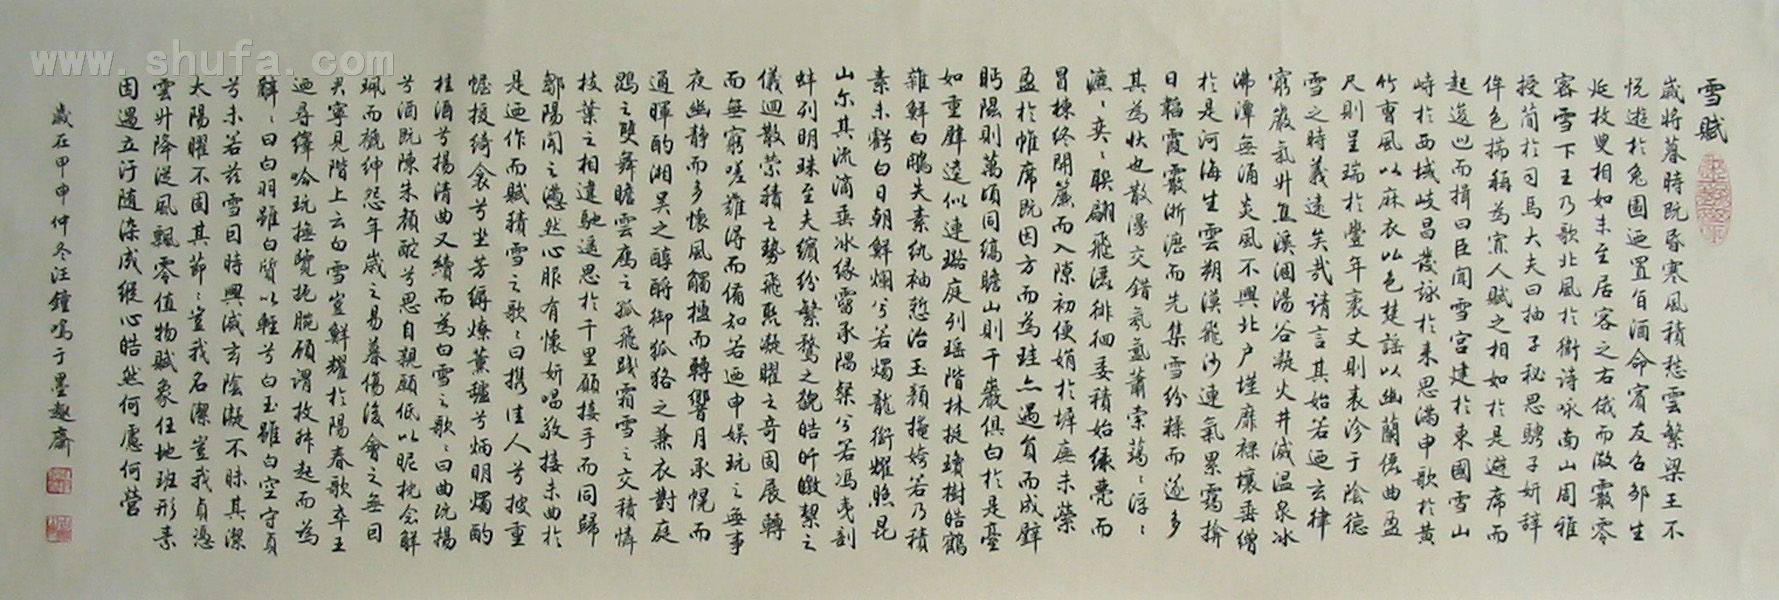 www.shufa.com
雪賦
歲將暮時既昏寒風積愁雲繁梁王不
悅遊於兔園迺置旨酒命賓友召鄒生
延枚叟相如未至居客之右俄而微霰零
密雪下王乃歌北風於衛詩咏南山周雅
授簡於司馬大夫曰抽子秘思騁子妍辭
侔色揣稱為寡人賦之相如於是避席而
起逡巡而揖曰臣聞雪宮建於東國雪山
峙於西域岐昌發詠於來思滿申歌於黃
竹曹風以麻衣比色楚謠以幽蘭儷曲盈
尺則呈瑞於豐年袤丈則表沴于陰德
雪之時義遠矣哉請言其始若迺玄律
窮嚴氣升焦溪涸湯谷凝火井滅溫泉冰
沸潭無涌炎風不興北户墐扉裸壤垂繒
於是河海生雲朔漠飛沙連氣累靄揜
日韜霞霰淅瀝而先集雪紛糅而遂多
其為狀也散漫交錯氛氳蕭索藹藹浮浮
瀌瀌奕奕聯翩飛灑徘徊委積始緣甍而
冒棟終開簾而入隙初便娟於墀廡末縈
盈於帷席既因方而為珪亦遇員而成璧
眄隰則萬頃同縞瞻山則千巖俱白於是臺
如重璧逵似連璐庭列瑤階林挺瓊樹皓鶴
奪鮮白鷳失素紈袖慙冶玉顏掩姱若乃積
素未虧白日朝鮮爛兮若燭龍銜耀照昆
山尔其流滴垂冰緣霤承隅粲兮若馮夷剖
蚌列明珠至夫繽紛繁騖之貌皓旰曒絜之
儀迴散縈積之勢飛聚凝曜之奇固展轉
而無窮嗟難得而備知若迺申娛玩之無事
夜幽靜而多懷風觸楹而轉響月承幌而
通暉酌湘吳之醇酎御狐狢之兼衣對庭
鵾之雙舞瞻雲雁之孤飛踐霜雪之交積憐
枝葉之相違馳遥思於千里願接手而同歸
鄒陽聞之懣然心服有懷妍唱敬接末曲於
是迺作而賦積雪之歌歌曰携佳人兮披重
幄援綺衾兮坐芳縟燎薰鑪兮炳明燭酌
桂酒兮揚清曲又續而為白雪之歌歌曰曲既揚
兮酒既陳朱顏酡兮思自親願低以昵枕念解
珮而褫紳怨年歲之易暮傷後會之無因
君寧見階上之白雪豈鮮耀於陽春歌卒王
迺尋繹吟玩撫覽扼腕顧謂枚叔起而為
亂亂曰白羽雖白質以輕兮白玉雖白空守貞
兮未若茲雪因時興滅玄陰凝不昧其潔
太陽曜不固其節節豈我名潔豈我貞憑
雲升降從風飄零值物賦象任地班形素
因遇立汙隨染成縱心皓然何慮何營
歲在甲申仲冬汪鐘鳴于墨趣齋